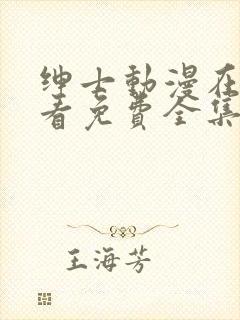 绅士動漫在
看免費全集
王海芳